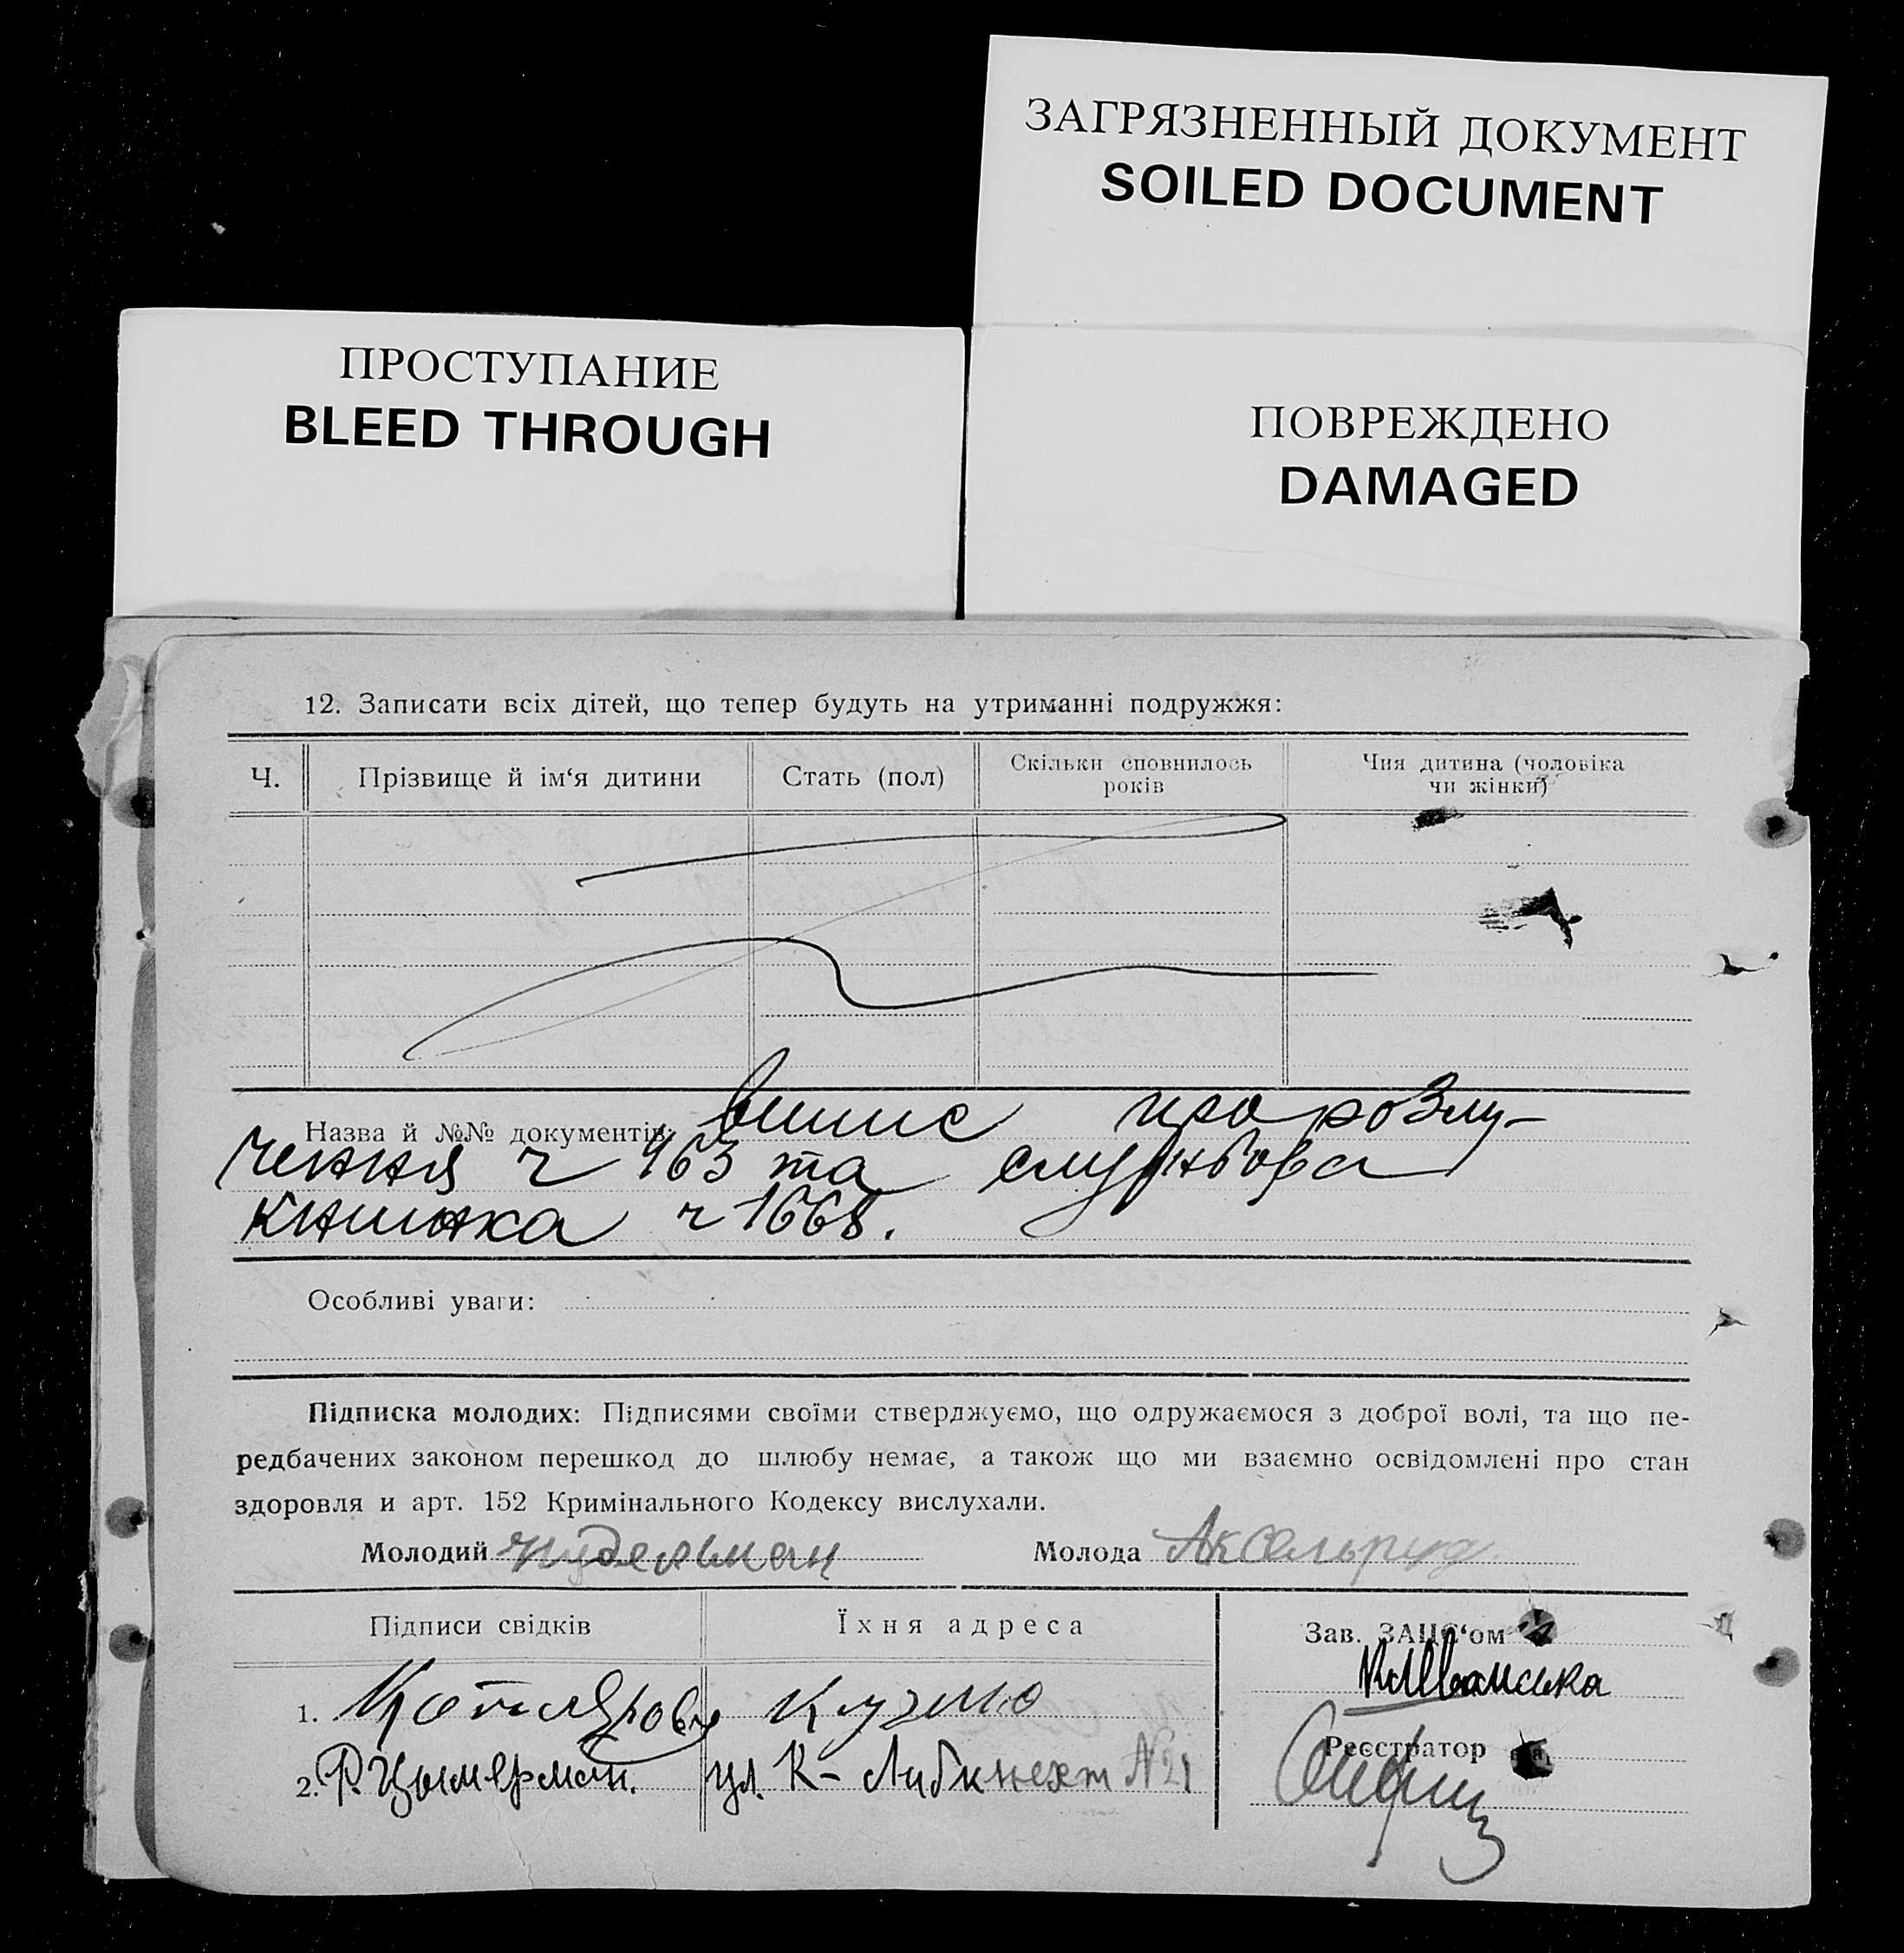 ЗАГРЯЗНЕННЫЙ ДОКУМЕНТ
SOILED DOCUMENT
ПРОСТУПАНИЕ
BLEED THROUGH
ПОВРЕЖДЕНО
DAMAGED
12. Записати всіх дітей, що тепер будуть на утриманні подружжя:
Ч. Прізвище й ім‘я дитини Стать (пол) Скільки сповнилось років Чия дитина (чоловіка чи жінки)
Назва й №№ документів: випис про розлу-
чення ч 463 та службова
книжка ч 1668.
Особливі уваги:
Підписка молодих: Підписями своїми стверджуємо, що одружаємося з доброї волі, та що пе-
редбачених законом перешкод до шлюбу немає, а також що ми взаємно освідомлені про стан
здоровля и арт. 152 Кримінального Кодексу вислухали.
Молодий Нудельман Молода Аксельруд
Підписи свідків Їхня адреса Зав. ЗАЦС‘ом
1.
2. Р. Цымерман. ул. К- Либкнехт №21
Реєстратор